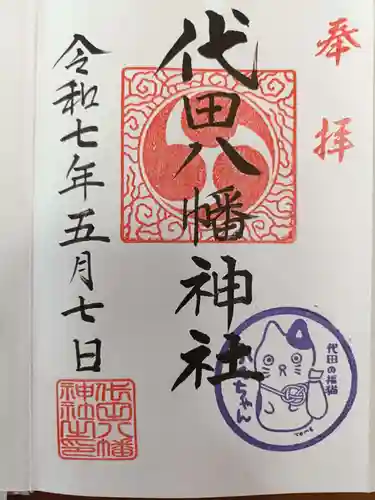 奉拝
代田八幡神社
令和七年五月七日
代田八幡神社之印
代田の福猫